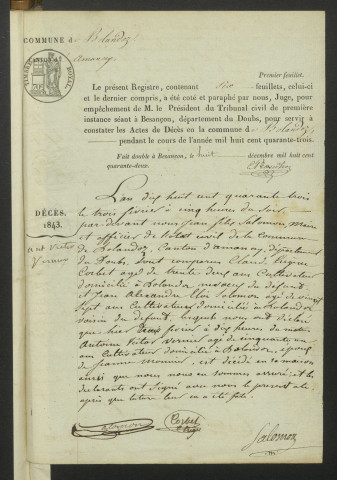 COMMUNE de Bolandoz
CANTON d'Amancey
TIMBRE ROYAL
Premier feuillet.
Le présent Registre, contenant six feuillets, celui-ci
et le dernier compris, a été coté et paraphé par nous, Juge, pour
empêchement de M. le Président du Tribunal civil de première
instance séant à Besançon, département du Doubs, pour servir à
constater les Actes de Décès en la commune de Bolandoz
pendant le cours de l'année mil huit cent quarante-trois.
Fait double à Besançon, le huit décembre mil huit cent
quarante-deux.
DÉCÈS.
1843.
Ant. Victor
Vernier
L'an dix huit cent quarante trois
le trois février à cinq heures du soir
par devant nous Jean Salomon Maire
et officier de l'état civil de la commune
de Bolandoz, Canton d'amancey, département
du Doubs, sont comparus Claude
Corbet agé de trente deux ans Cultivateur
domicilié à Bolandoz du defunt
et Jean Alexandre Salomon agé de vingt
sept ans Cultivateur domicilié à Bolandoz
voisin du defunt, lesquels nous ont déclaré
que hier Deux février à dix heures du matin
Antoine Victor Vernier agé de cinquante
ans Cultivateur domicilié à Bolandoz, epoux
de Jeanne est décédé en sa maison
ainsi que nous nous en sommes arrivés et les
declarants ont signé avec nous le present acte
après que lecture leur en a été faite.
Salomon Corbet
Salomon